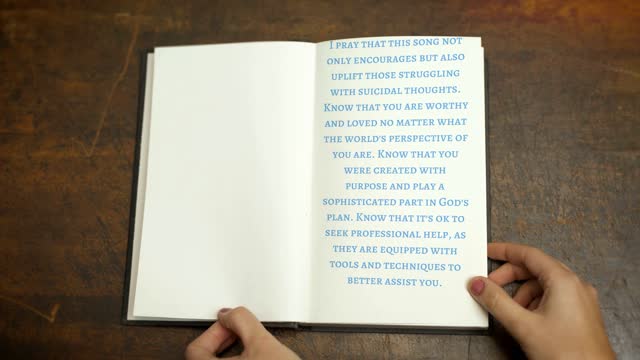 I pray that this song not
only encourages but also
uplift those struggling
with suicidal thoughts.
Know that you are worthy
and loved no matter what
the world's perspective of
you are. Know that you
were created with
purpose and play a
sophisticated part in God's
plan. Know that it's ok to
seek professional help, as
they are equipped with
tools and techniques to
better assist you.